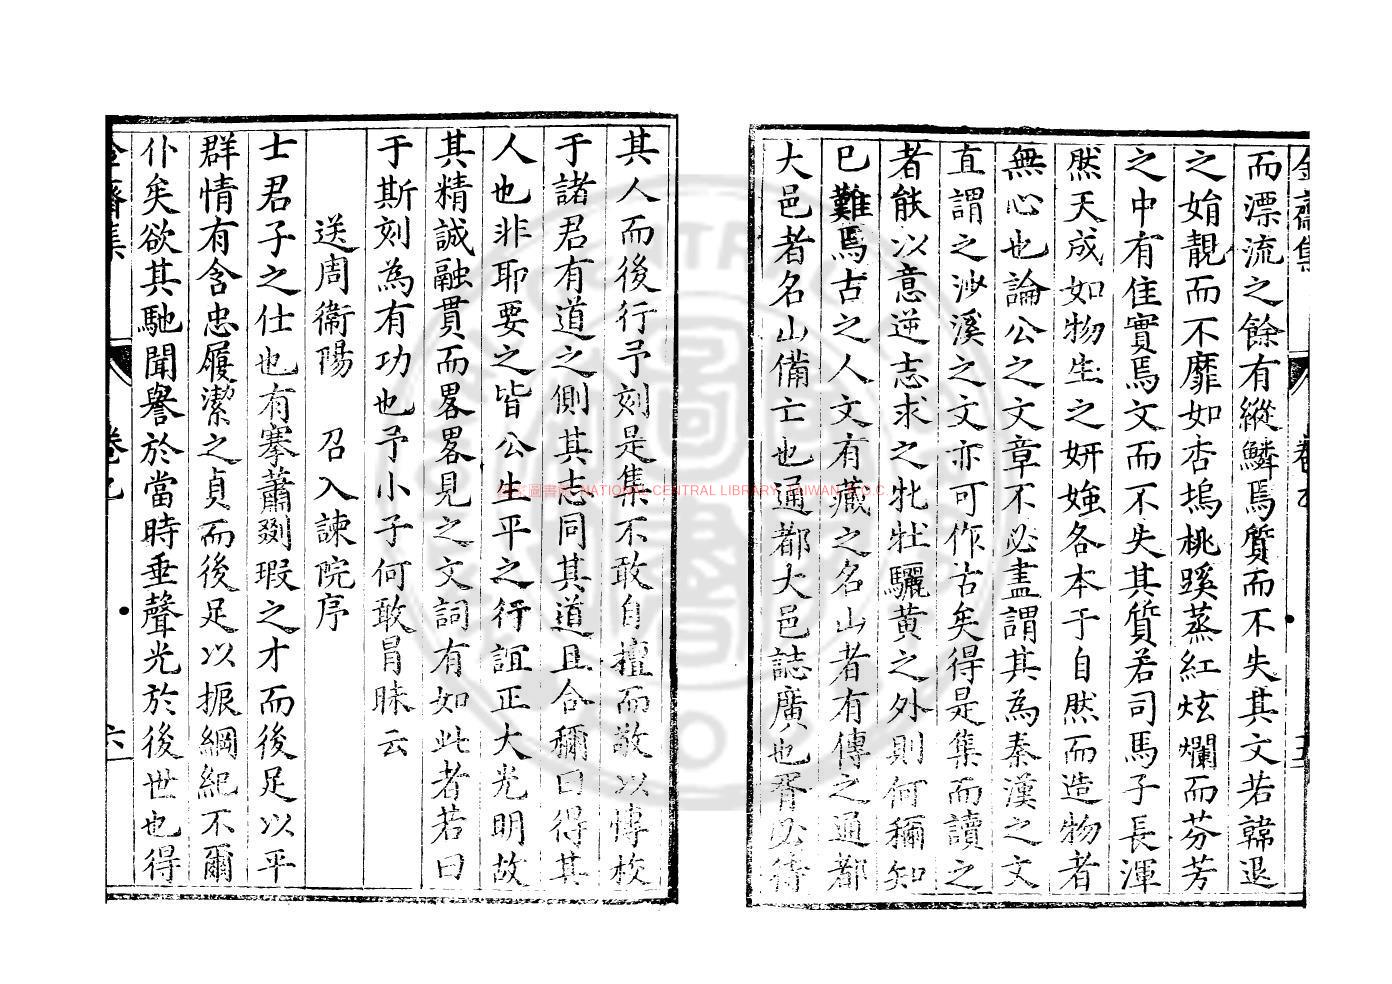 而漂流之餘有縱鱗焉質而不失其文若韓退
之娟靚而不靡如杏塢桃蹊蒸紅炫爛而芬芳
之中有佳實焉文而不失其質若司馬子長渾
然天成如物生之妍媸各本于自然而造物者
無心也論公之文章不必盡謂其為秦漢之文
直謂之沙溪之文亦可作古矣得是集而讀之
者能以意逆志求之牝牡驪黄之外則何稱知
已難焉古之人文有藏之名山者有傳之通都
大邑者名山備亡也通都大邑誌廣也胥必待
其人而後行予刻是集不敢自擅而敬以慱校
于諸君有道之側其志同其道且合稱曰得其
人也非耶要之皆公生平之行誼正大光明故
其精誠融貫而畧畧見之文詞有如此者若曰
于斯刻為有功也予小子何敢冐昧云
送周衞陽 召入諫院序
士君子之仕也有搴蕭剟瑕之才而後足以平
群情有含忠履潔之貞而後足以振綱紀不爾
仆矣欲其馳聞譽於當時垂聲光於後世也得
卷 六